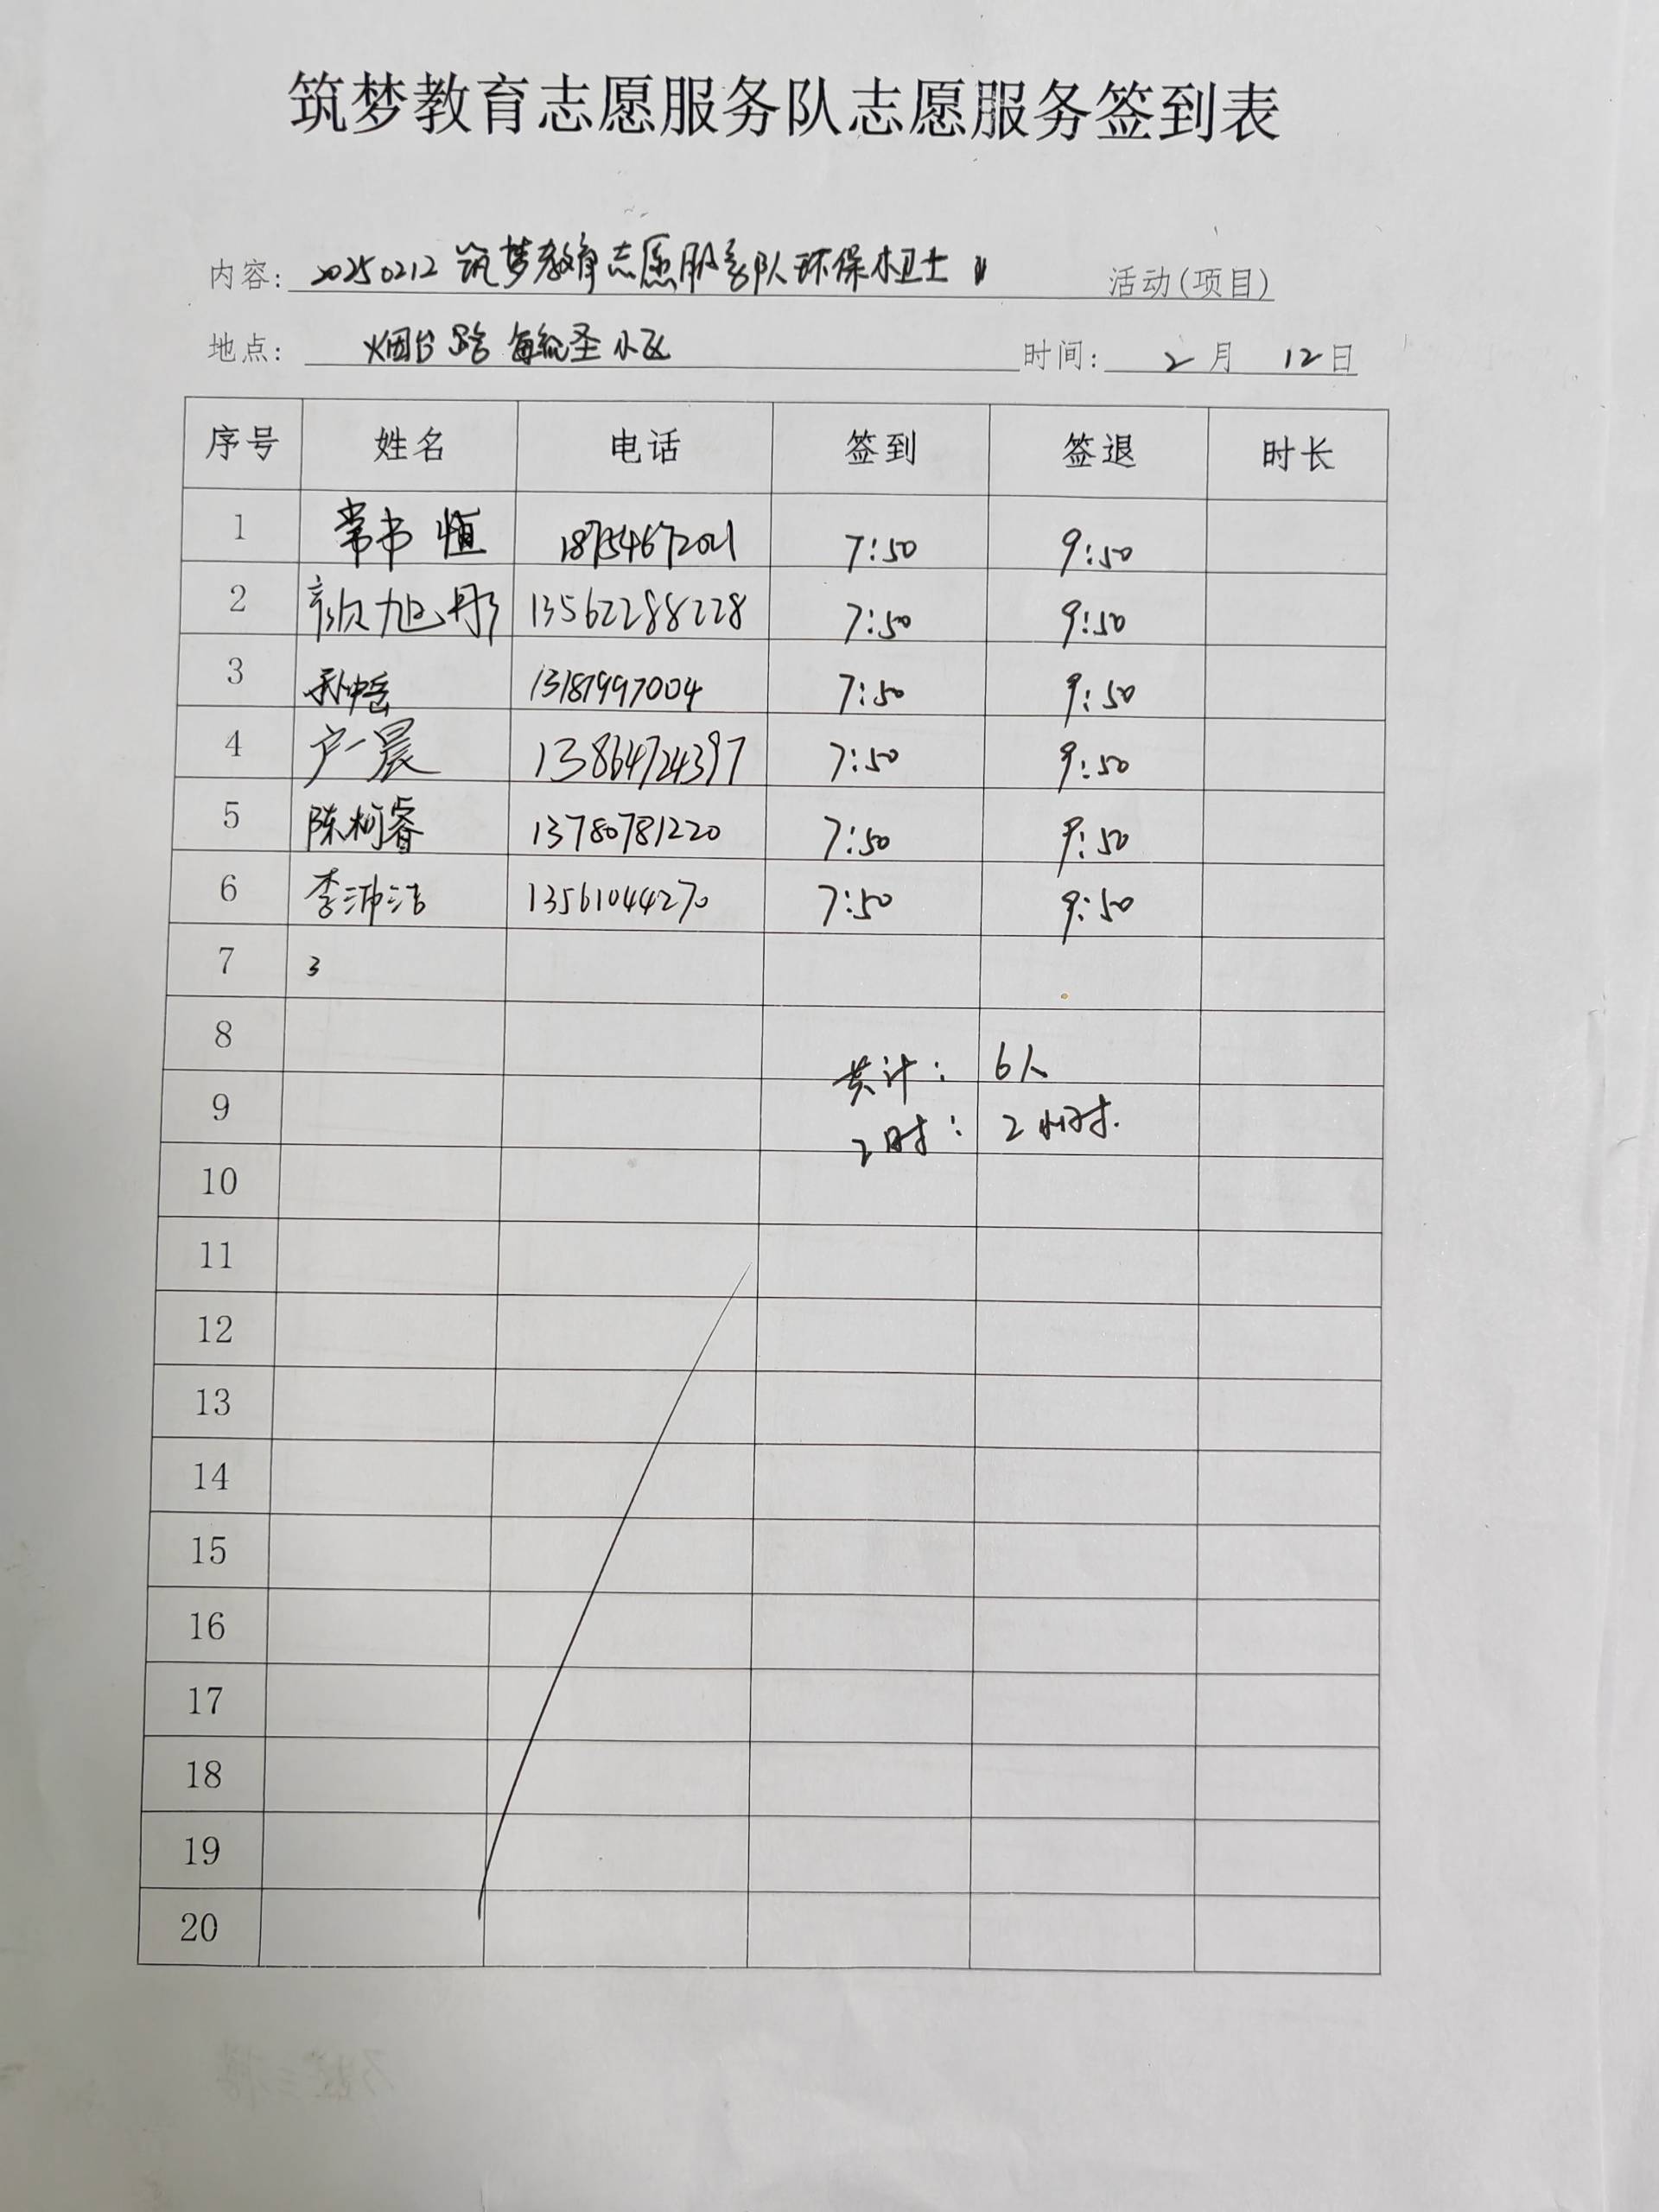 筑梦教育志愿服务队志愿服务签到表
内容: 20250212 筑梦教育志愿服务队环保卫士 活动(项目)
地点: 烟台路 小区 时间: 2月 12日
序号 姓名 电话 签到 签退 时长
1 常书恒 7:50 9:50
2 颜旭彤 13562288228 7:50 9:50
3 13181997004 7:50 9:50
4 户一晨 13864724397 7:50 9:50
5 陈柯睿 13780781220 7:50 9:50
6 李沛洁 13561044270 7:50 9:50
7 3
8
共计: 6人
9
时: 2小时.
10
11
12
13
14
15
16
17
18
19
20